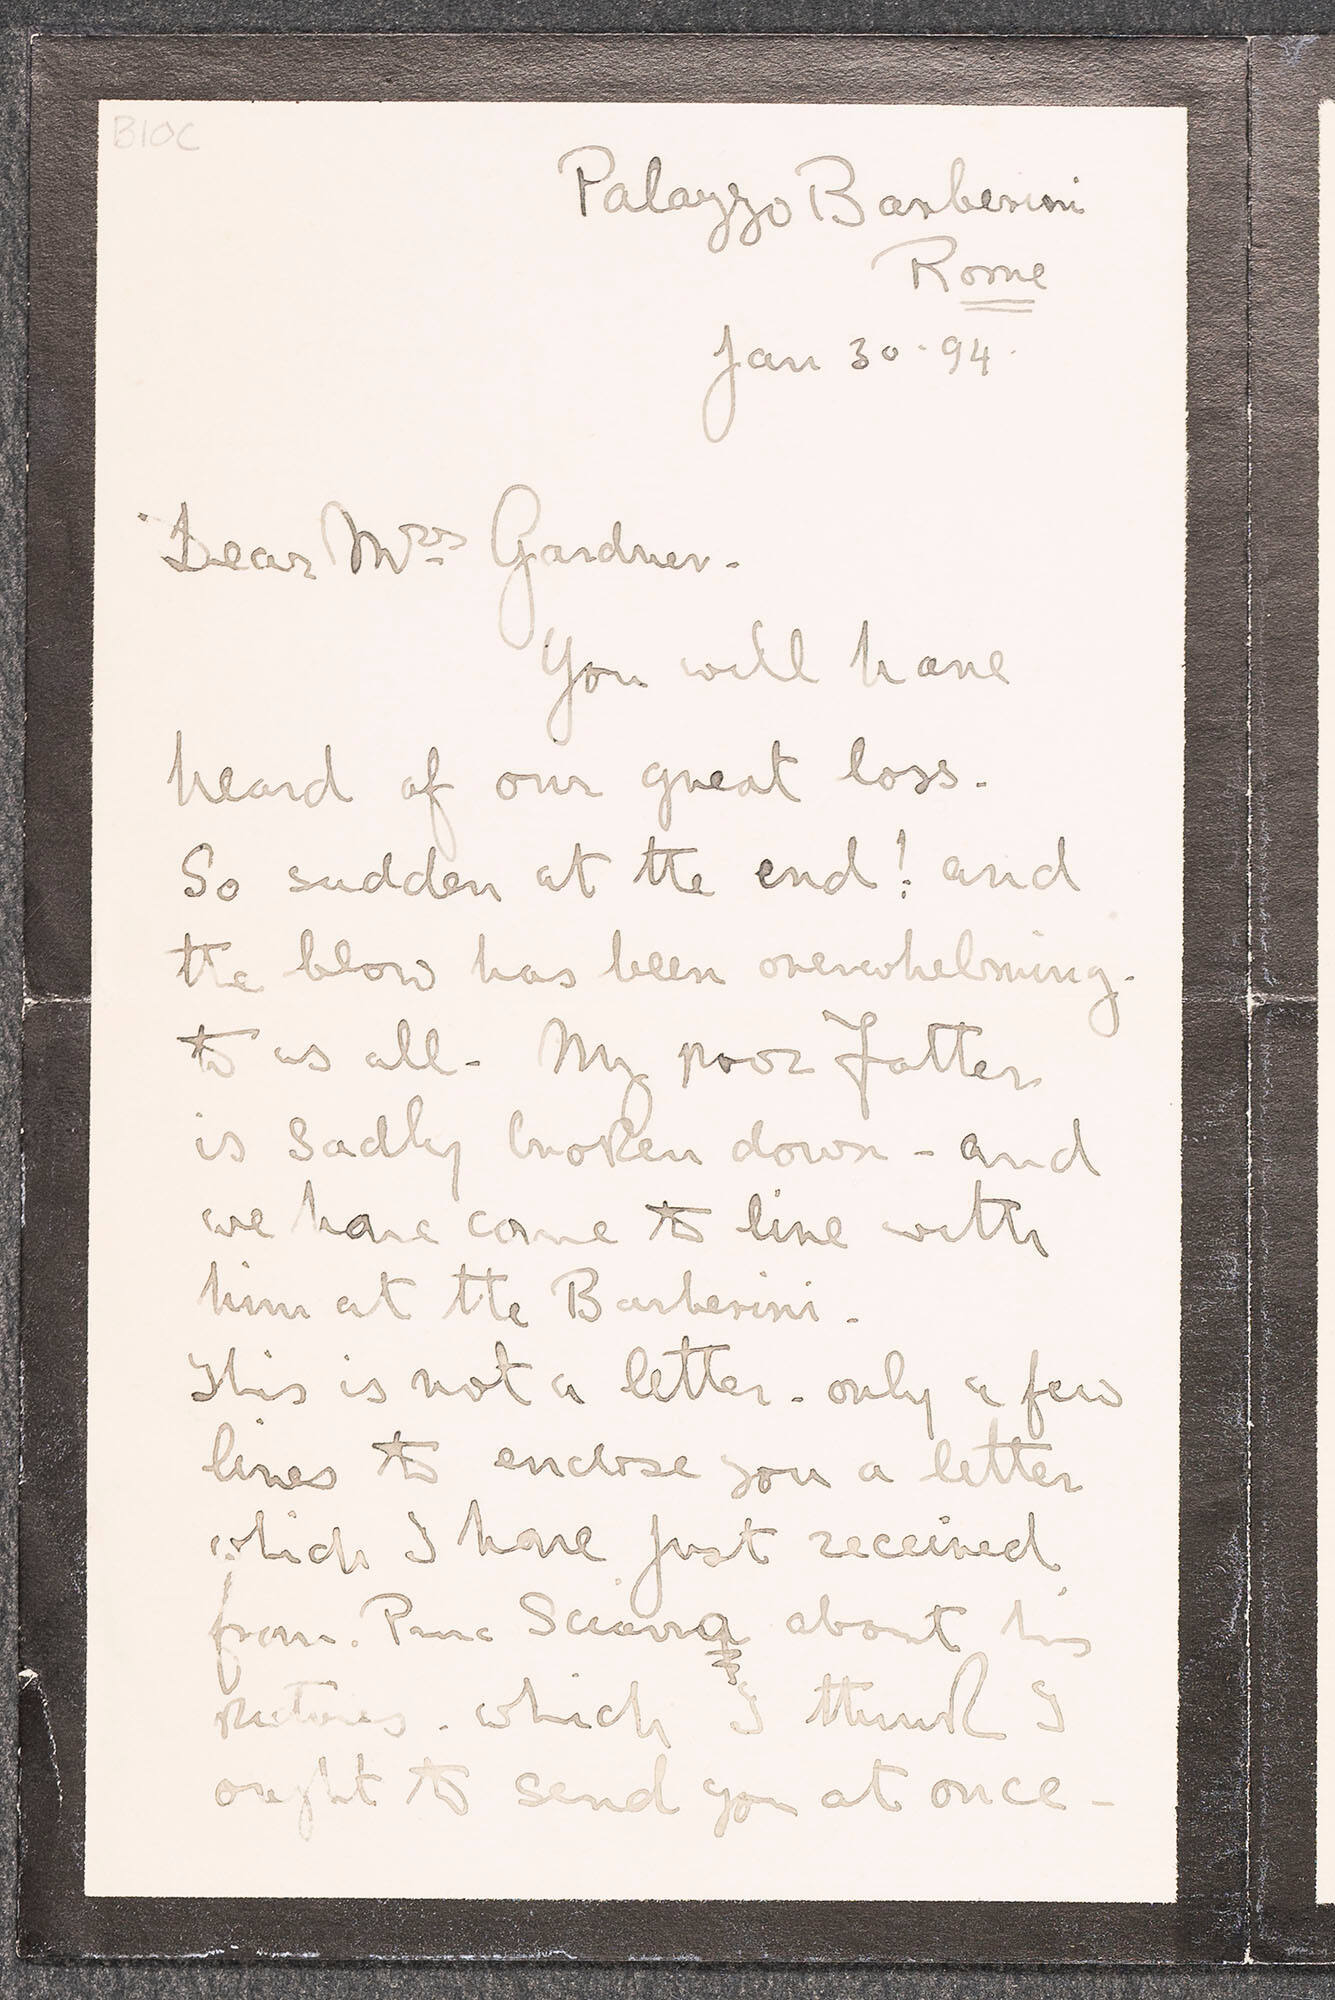 B10C
Palazzo Barberini
Rome
Jan 30 . 94.
Dear Mrs Gardner -
You will have
heard of our great loss -
So sudden at the end! and
the blow has been overwhelming -
to us all - My poor Father
is sadly broken down - and
we have come to live with
him at the Barberini -
This is not a letter - only a few
lines to enclose you a letter
which I have just received
from Sciarra about his
pictures - which I think I
ought to send you at once -